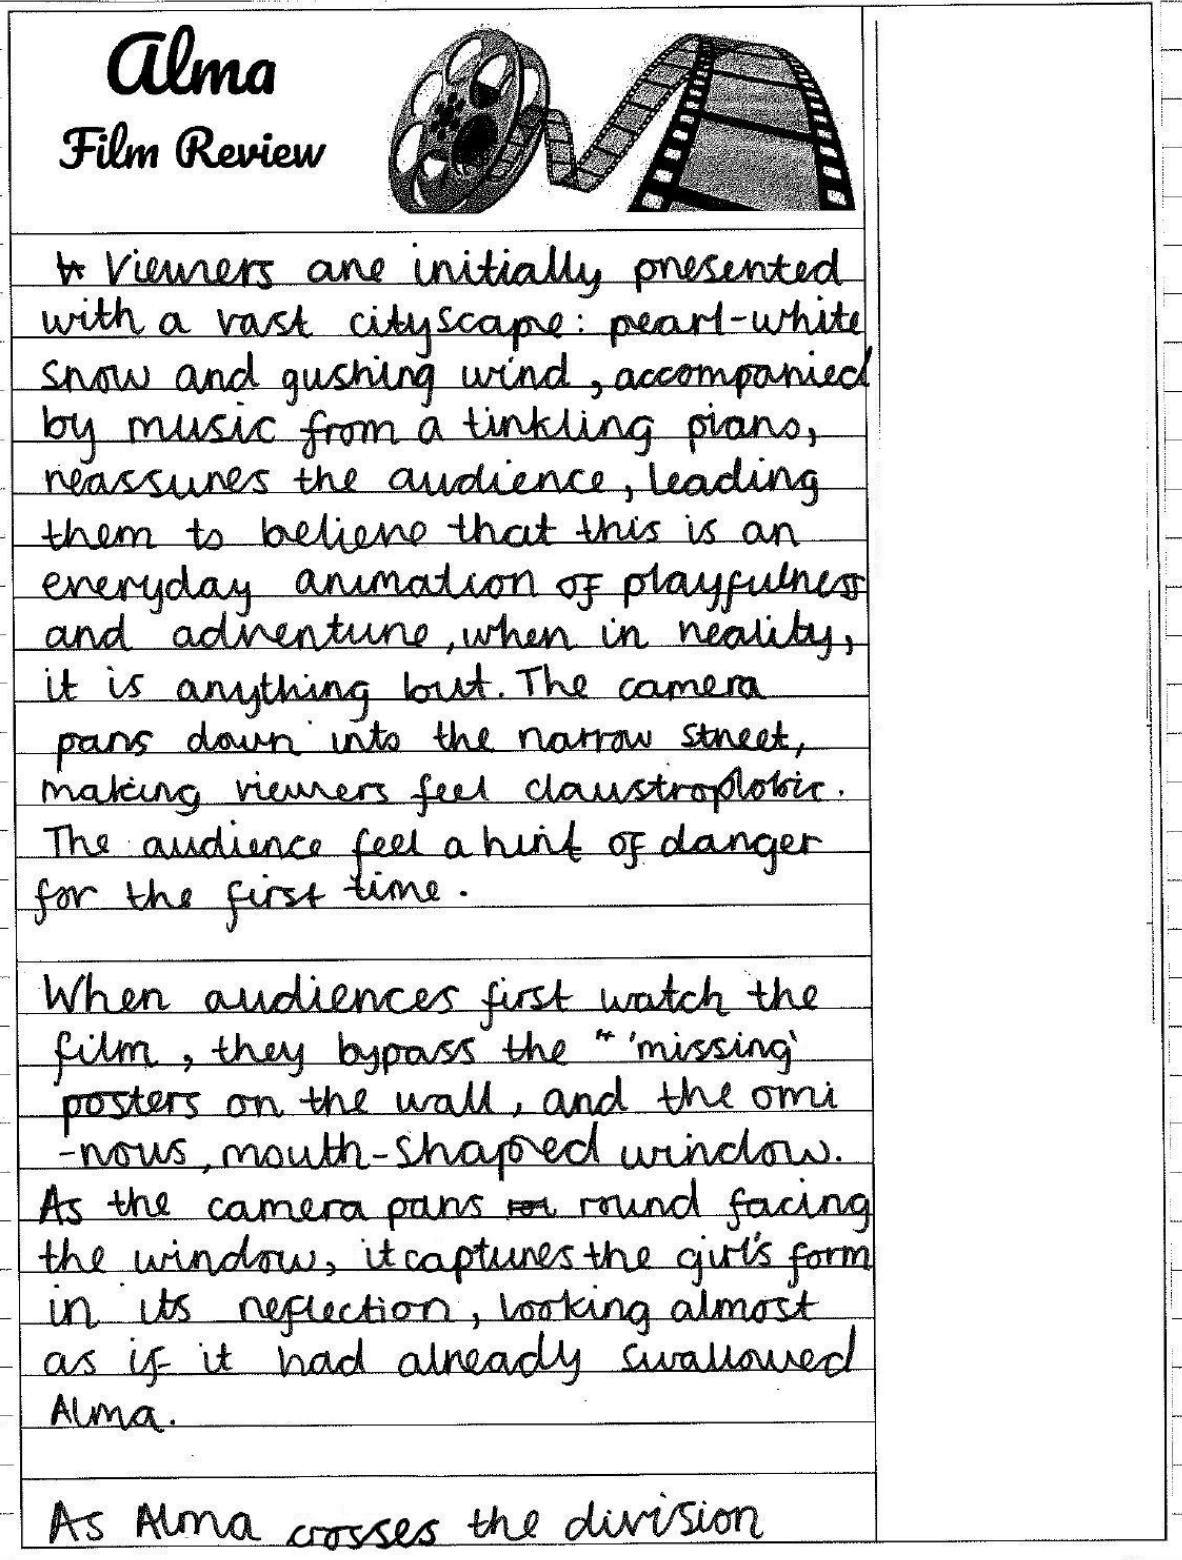 Alma
Film Review
Viewers are initially presented
with a vast cityscape: pearl-white
snow and gushing wind, accompanied
by music from a tinkling piano,
reassures the audience, leading
them to believe that this is an
everyday animation of playfulness
and adventure, when in reality,
it is anything but. The camera
pans down into the narrow street,
making viewers feel claustrophobic.
The audience feel a hint of danger
for the first time.
When audiences first watch the
film, they bypass the 'missing'
posters on the wall, and the omi
-nous, mouth-shaped window.
As the camera pans round facing
the window, it captures the girl's form
in its reflection, looking almost
as if it had already swallowed
Alma.
As Alma crosses the division